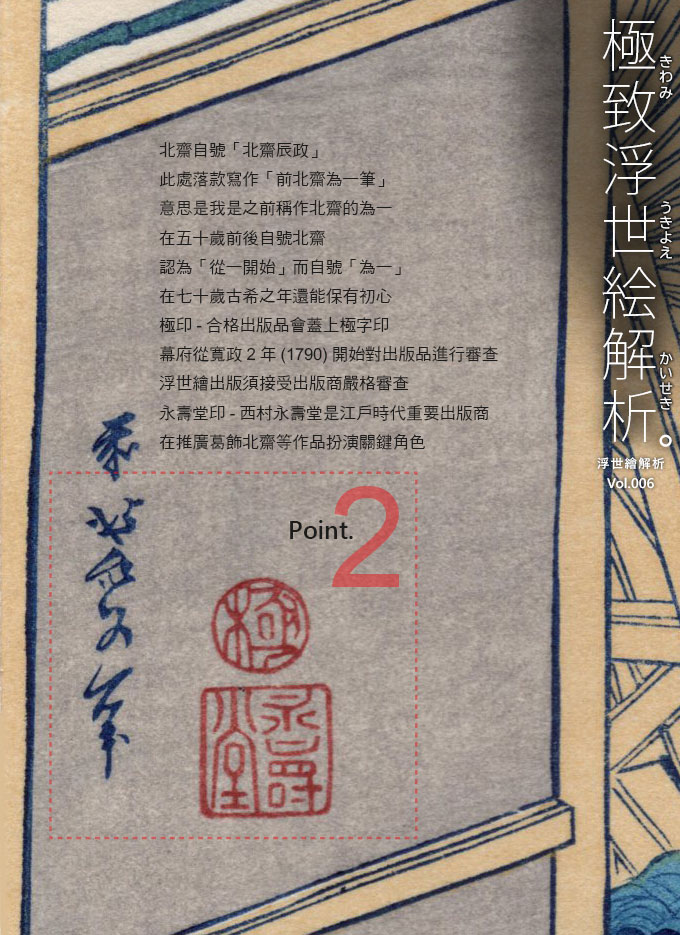 極致浮世絵解析。
きわみ
うきよえ
かいせき
浮世繪解析
Vol.006
北齋自號「北齋辰政」
此處落款寫作「前北齋為一筆」
意思是我是之前稱作北齋的為一
在五十歲前後自號北齋
認為「從一開始」而自號「為一」
在七十歲古希之年還能保有初心
極印 - 合格出版品會蓋上極字印
幕府從寬政 2 年 (1790) 開始對出版品進行審查
浮世繪出版須接受出版商嚴格審查
永壽堂印 - 西村永壽堂是江戶時代重要出版商
在推廣葛飾北齋等作品扮演關鍵角色
Point.
2
前北斎為一筆
極
永壽堂